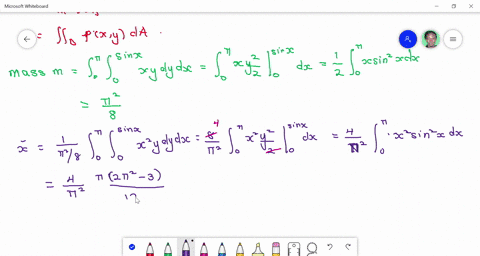 Microsoft Whiteboard
= ∬_D ρ(x,y) dA .
mass m = ∫_0^π ∫_0^{sinx} xy dy dx = ∫_0^π x y²/2 |_0^{sinx} dx = 1/2 ∫_0^π x sin²x dx
= π²/8
x̄ = 1/(π²/8) ∫_0^π ∫_0^{sinx} x²y dy dx = 8 4/π² ∫_0^π x² y²/2 |_0^{sinx} dx = 4/π² ∫_0^π · x² sin²x dx
= 4/π² π(2π²-3)/12